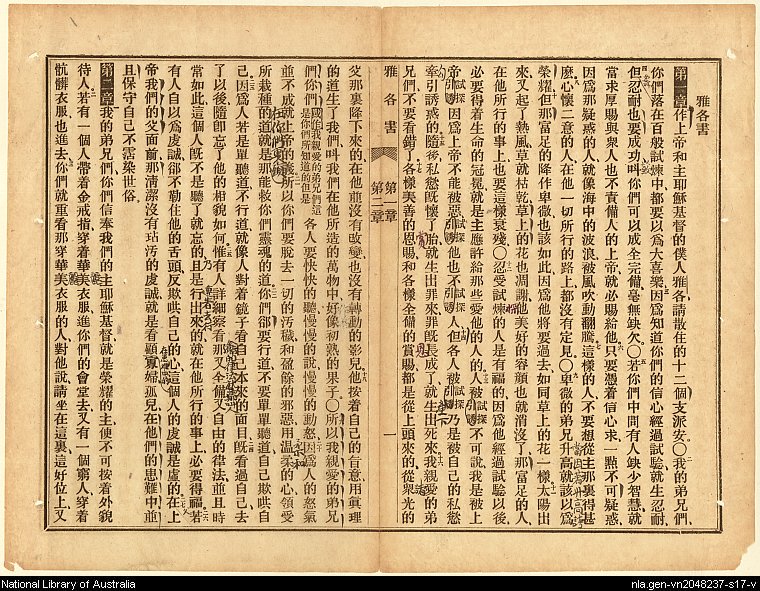 雅各書
第一章作上帝和主耶穌基督的僕人雅各請散住的十二個支派安○我的弟兄們
你們落在百般試煉中都要以爲大喜樂因爲知道你們的信心經過試驗就生忍耐
但忍耐也要成功叫你們可以成全完備毫無缺欠○若你們中間有人缺少智慧就
當求厚賜與衆人也不責備人的上帝就必賜給他只要憑着信心求一點不可疑惑
因爲那疑惑的人就像海中的波浪被風吹動翻騰這樣的人不要想從主那裏得甚
麽心懷二意的人在他一切所行的路上都沒有定見○卑微的弟兄升高就該以爲
榮耀但那富足的降作卑微也該如此因爲他將要過去如同草上的花一樣太陽出
來又起了熱風草就枯乾草上的花也凋謝他美好的容顏也就消沒了那富足的人
在他所行的事上也要這樣衰殘○忍受試煉的人是有福的因爲他經過試驗以後
必要得着生命的冠冕就是主應許給那些愛他的人的人被試探引誘不可說我是被上
帝試探引誘因爲上帝不能被惡試探引誘他也不試探引誘人但各人被試探引誘乃是被自己的私慾
牽引誘惑的隨後私慾旣懷了胎就生出罪來罪旣長成了就生出死來我親愛的弟
兄們不要看錯了各樣美善的恩賜和各樣全備的賞賜都是從上頭來的從衆光的
雅各書 第一章 第二章 一
父那裏降下來的在他並沒有改變也沒有轉動的影兒他按着自己的旨意用眞理
的道生了我們叫我們在他所造的萬物中好像初熟的果子○所以我親愛的弟兄
們你們國作我親愛的弟兄們這是你們所知道的但是各人要快快的聽慢慢的說慢慢的動怒因爲人的怒氣
並不成就上帝的義所以你們要脫去一切的汚穢和盈餘的邪惡用温柔的心領受
所栽種的道就是那能救你們靈魂的道你們都要行道不要單單聽道自己欺哄自
己因爲人若是單聽道不行道就像人對着鏡子看自己本來的面目旣看過自己去
了以後隨卽忘了他的相貌如何惟有人詳細察看那又全備又自由的律法並且時
常如此這個人旣不是聽了就忘的且是行出來的就在他所行的事上必要得福若
有人自以爲虔誠卻不勒住他的舌頭反欺哄自己的心這個人的虔誠是虛的在上
帝我們的父面前那清潔沒有玷汚的虔誠就是看顧寡婦孤兒在他們的患難中並
且保守自己不霑染世俗
第二章我的弟兄們你們信奉我們的主耶穌基督就是榮耀的主便不可按着外貌
待人若有一個人帶着金戒指穿着華美衣服進你們的會堂去又有一個窮人穿着
骯髒衣服也進去你們就重看那穿華美衣服的人對他說請坐在這裏這好位上又
National Library of Australia
nla.gen-vn2048237-s17-v